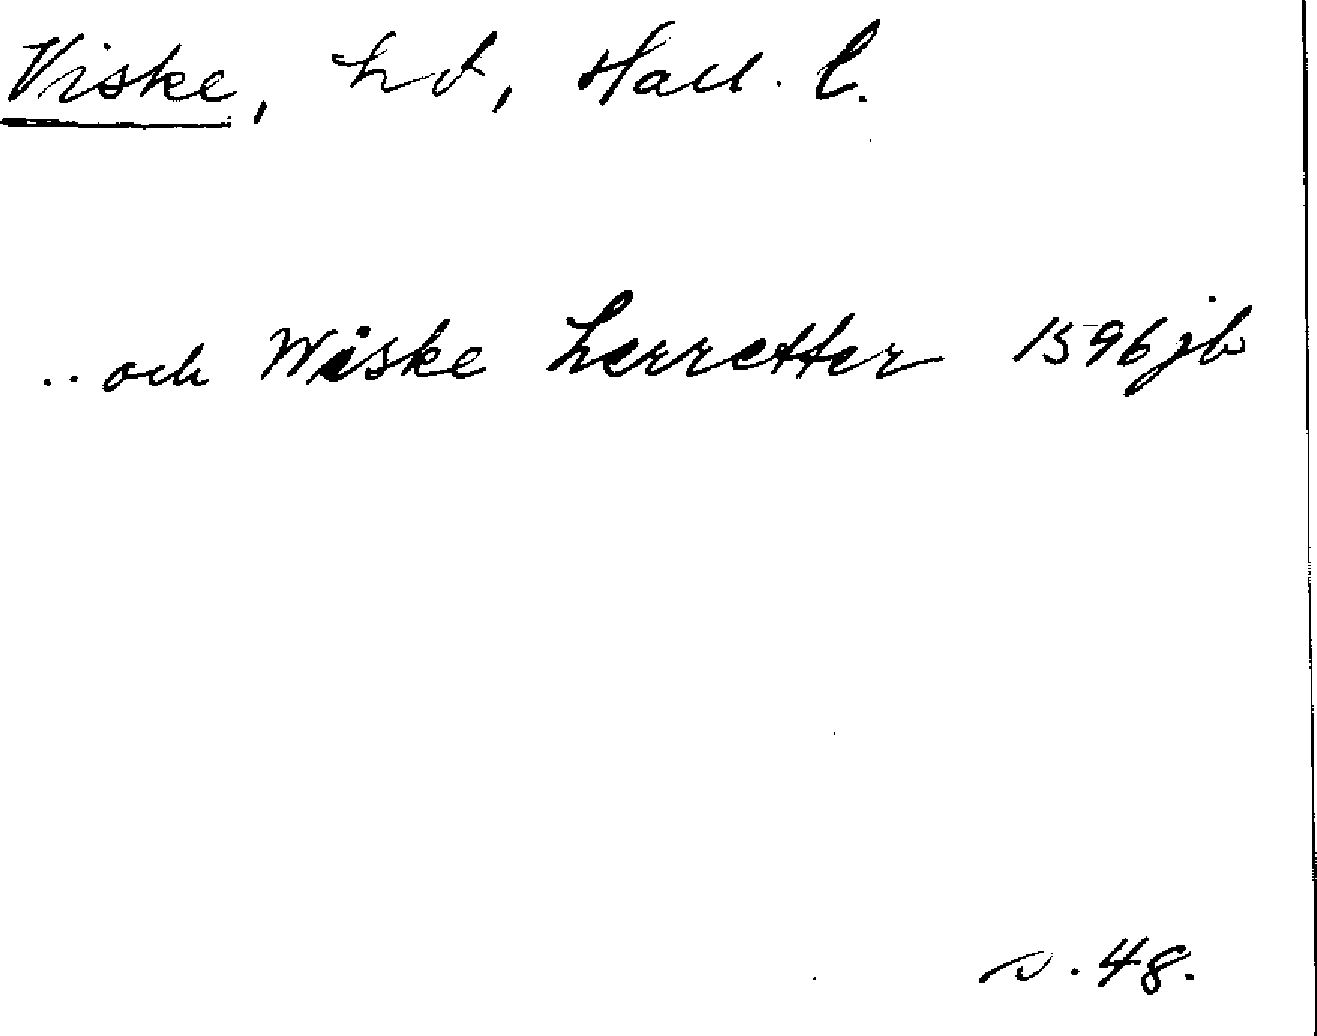 Viske, hd, Hall. l.
.. och Wiske herretter 1596 jb
s. 48.